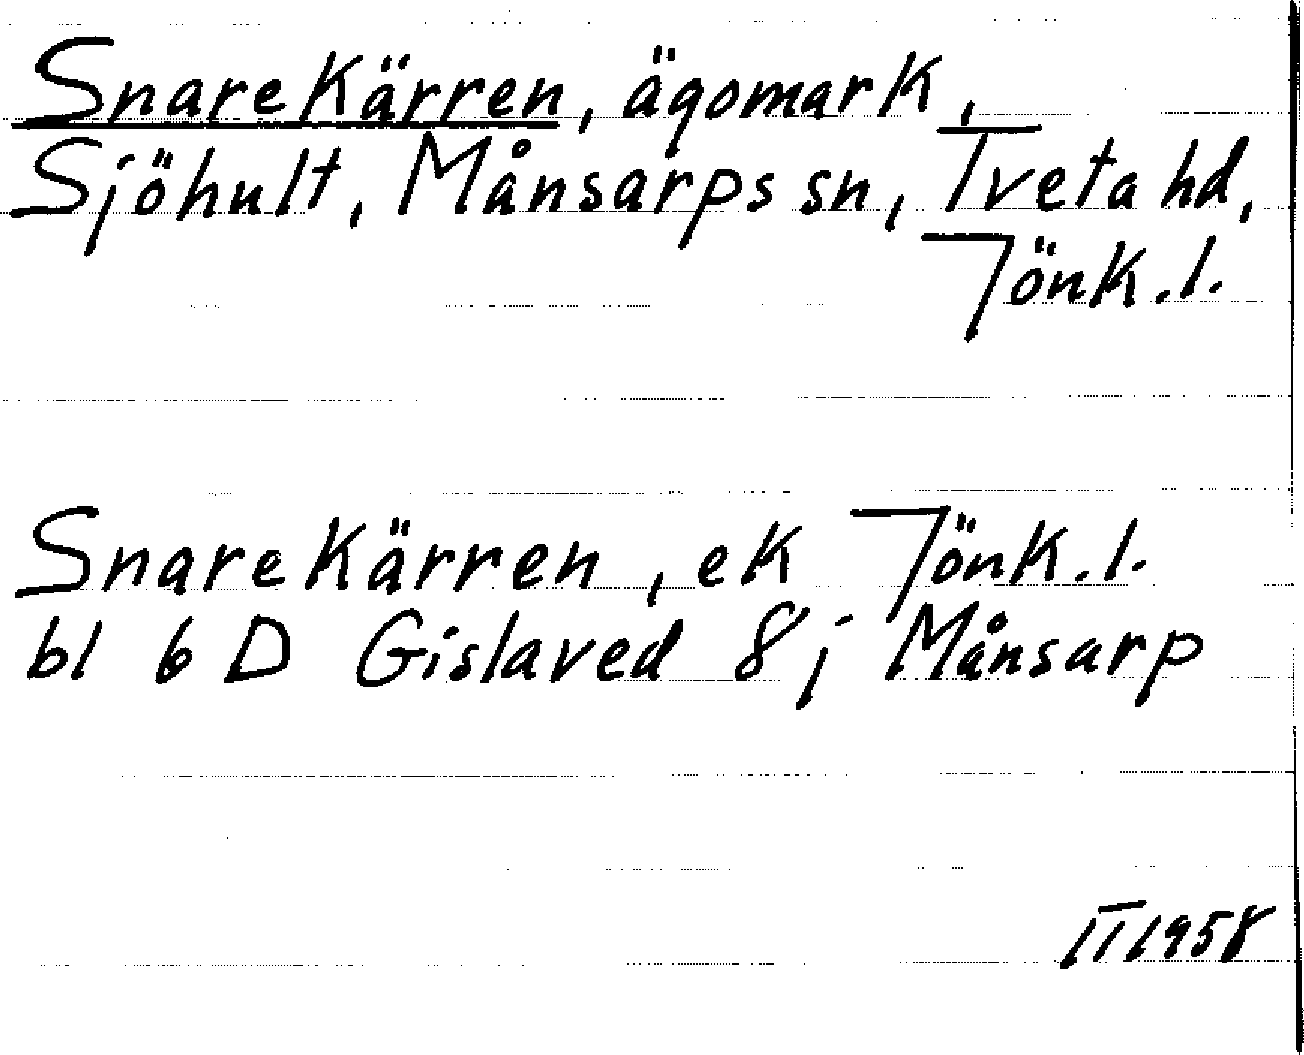 Snarekärren, ägomark,
Sjöhult, Månsarps sn, Tveta hd,
Jönk.l.
Snarekärren, ek Jönk.l.
bl 6 D Gislaved 8 j Månsarp
II 1958